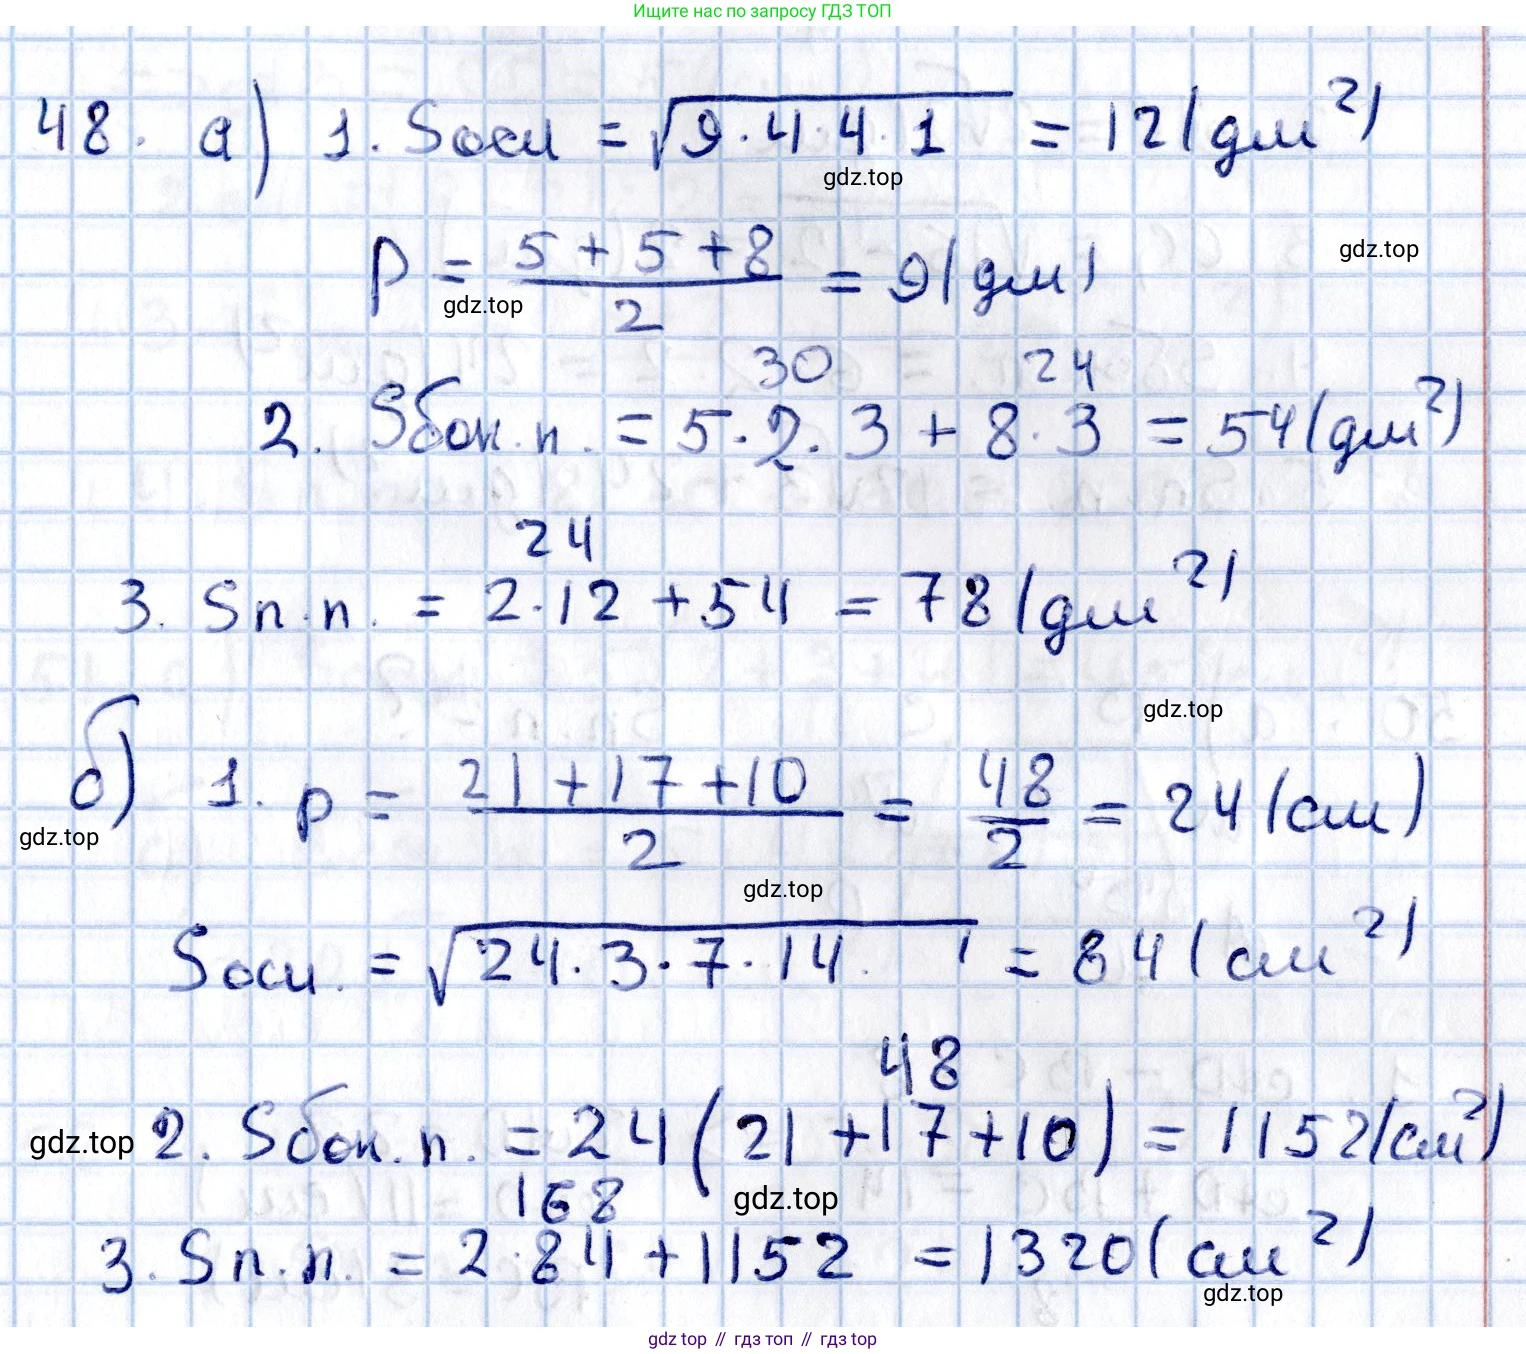 Ищите нас по запросу ГДЗ ТОП
48. а) 1. Sосн = √(9·4·4·1) = 12(дм²)
gdz.top
p = (5+5+8)/2 = 9(дм)
gdz.top
gdz.top
30 24
2. Sбок.п. = 5·2·3 + 8·3 = 54(дм²)
24
3. Sп.п. = 2·12 + 54 = 78(дм²)
gdz.top
б) 1. p = (21+17+10)/2 = 48/2 = 24(см)
gdz.top
gdz.top
Sосн. = √(24·3·7·14) = 84(см²)
48
gdz.top 2. Sбок.п. = 24(21+17+10) = 1152(см²)
168
gdz.top
3. Sп.п. = 2·84+1152 = 1320(см²)
gdz.top
gdz top // гдз топ // гдз top